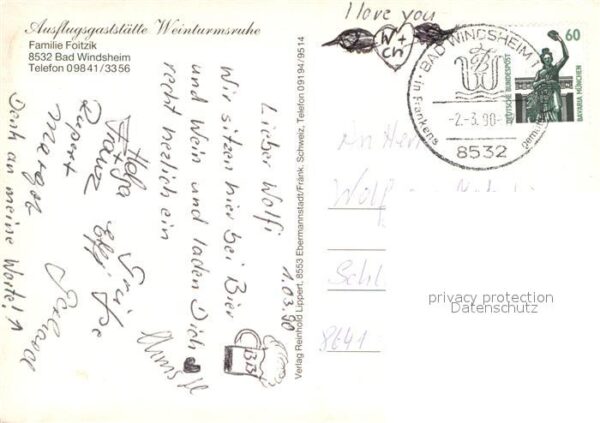 Ausflugsgaststätte Weinturmsruhe
Familie Foitzik
8532 Bad Windsheim
Telefon 09841/3356
I love you
N+
ch
60
DEUTSCHE BUNDESPOST
BAVARIA MÜNCHEN
BAD WINDSHEIM 1
-2.-3.90-
in Frankens
gem
8532
1.03.90
Lieber Wolfi
Wir sitzen hier bei Bier
und Wein und laden Dich
recht herzlich ein
Grüße
Hans
Franz
Rupert
Margot
Denk an meine Worte!
Verlag Reinhold Lippert, 8553 Ebermannstadt/Fränk. Schweiz, Telefon 09194/9514
An Herr
Wolf
Schl
8641
privacy protection
Datenschutz